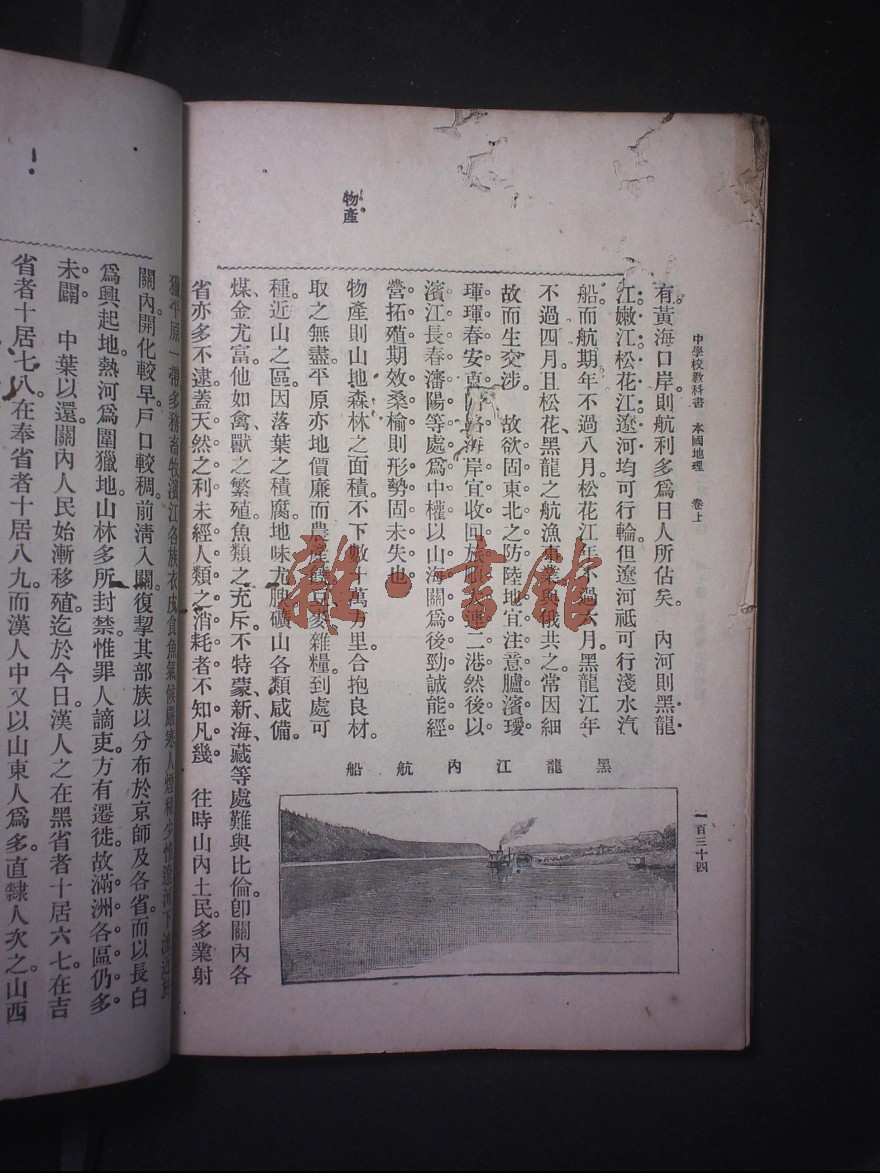 中學校教科書 本國地理 卷上
一百三十四
有黃海口岸則航利多爲日人所佔矣。 內河則黑龍
江嫩江松花江遼河均可行輪但遼河祗可行淺水汽
船而航期年不過八月松花江年不過六月黑龍江年
不過四月且松花黑龍之航漁事業與俄共之常因細
故而生交涉。 故欲固東北之防陸地宜注意臚濱璦
琿琿春安 海岸宜收回旅順大連二港然後以
濱江長春瀋陽等處爲中權以山海關爲後勁誠能經
營拓殖期效桑榆則形勢固未失也
物產
物產則山地森林之面積不下數十萬方里合抱良材
取之無盡平原亦地價廉而農產 麥雜糧到處可
種近山之區因落葉之積腐地味尤腴礦山各類咸備
煤金尤富他如禽獸之繁殖魚類之充斥不特蒙新海藏等處難與比倫卽關內各
省亦多不逮蓋天然之利未經人類之消耗者不知凡幾。 往時山內土民多業射
黑龍江內航船
獵平原一帶多務畜牧濱江各族衣皮食魚氣候嚴寒人煙稀少惟遼河下流近
關內開化較早戶口較稠前淸入關復挈其部族以分布於京師及各省而以長白
爲興起地熱河爲圍獵地山林多所封禁惟罪人謫吏方有遷徙故滿洲各區仍多
未闢。 中葉以還關內人民始漸移殖迄於今日漢人之在黑省者十居六七在吉
省者十居七八在奉省者十居八九而漢人中又以山東人爲多直隸人次之山西
雜·書館